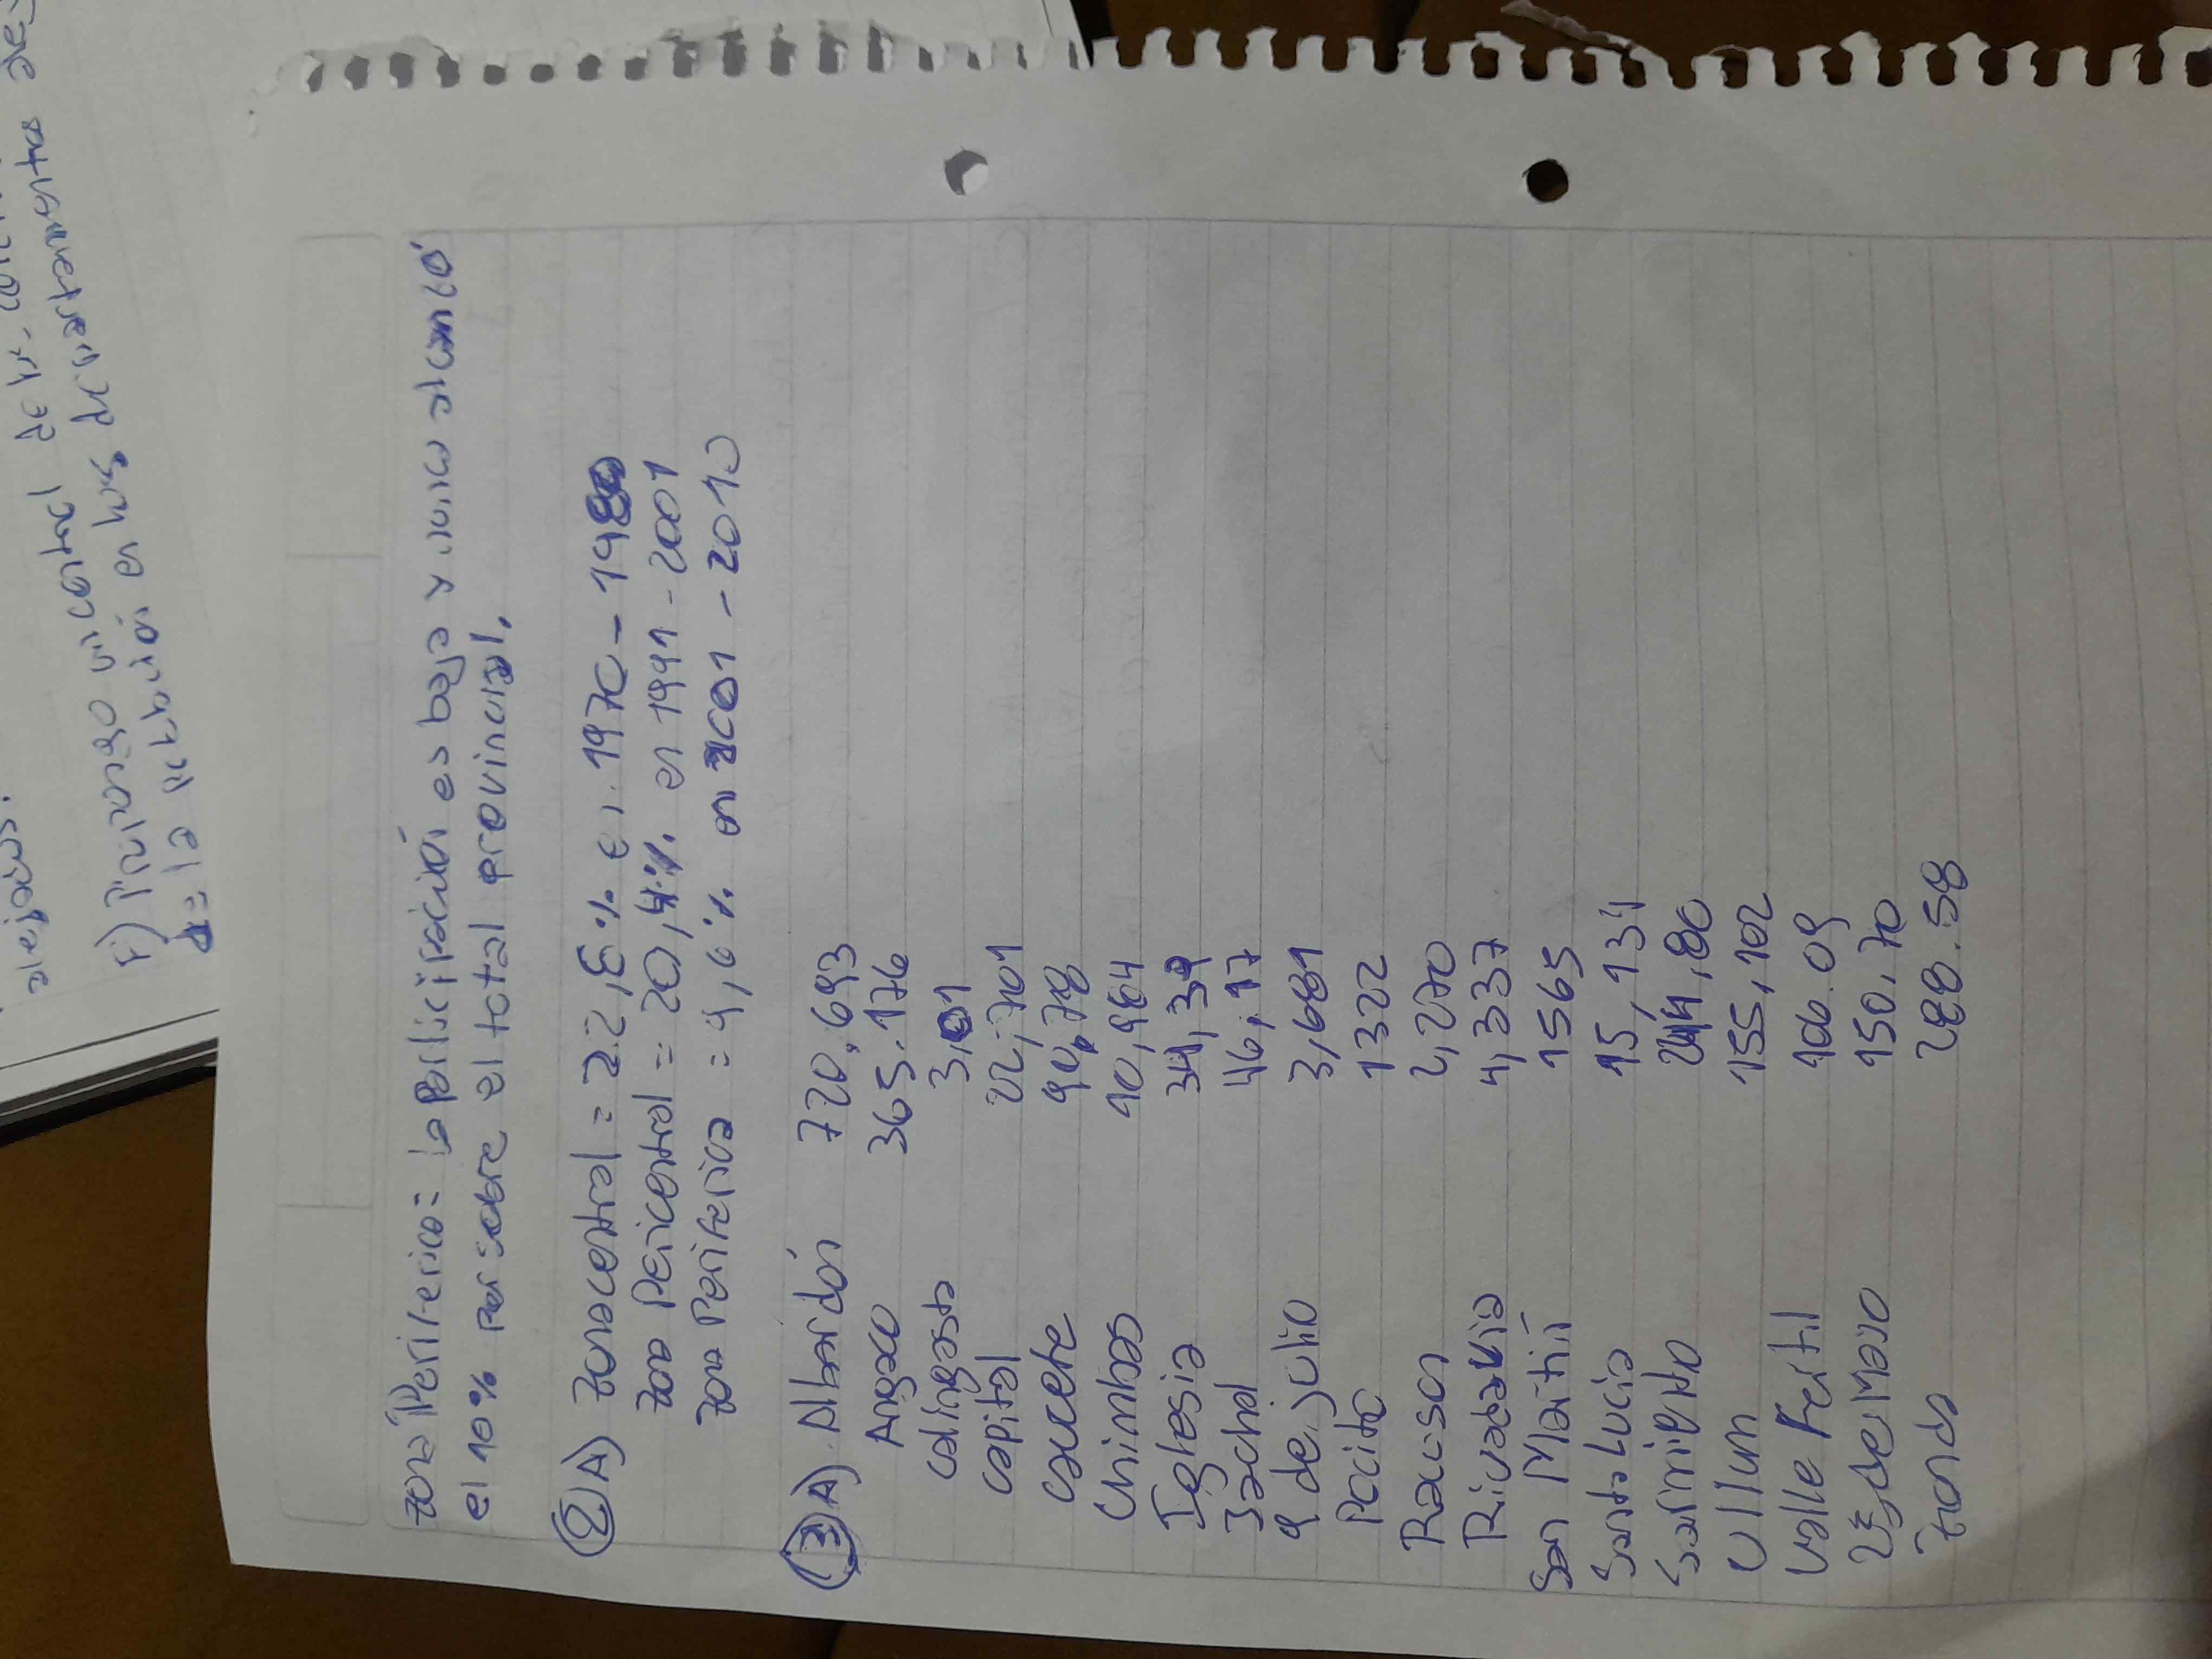 alejados.
F) Propongo
la población en los departamentos de
zona Periferica= la Participación es baja y nunca alcanzó
el 10% por sobre el total provincial.
② A) zona central = 22,6% en 1970-1980
zona Pericentral = 20,4% en 1991-2001
zona Periferica = 4,6% en 2001-2010
③ A) Albardón 720.693
Angaco 365.176
calingasta 3,01
capital 22,701
caucete 90,78
chimbas 10,964
Iglesia 34,39
Jachal 46,17
9 de julio 3,681
Pocito 1322
Rawson 2,270
Rivadavia 4,337
San Martín 1565
Santa Lucia 15,134
Sarmiento 244,80
Ullum 155,102
Valle Fertil 106.09
25 de Mayo 150.70
Zonda 288.58